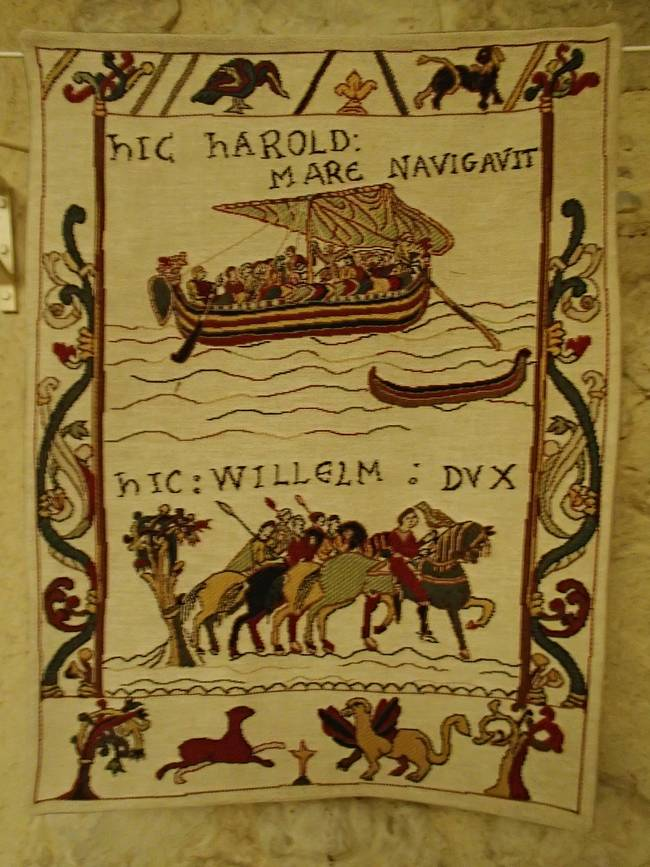 hIC hAROLD:
MARE NAVIGAVIT
hIC : WILLELM : DVX